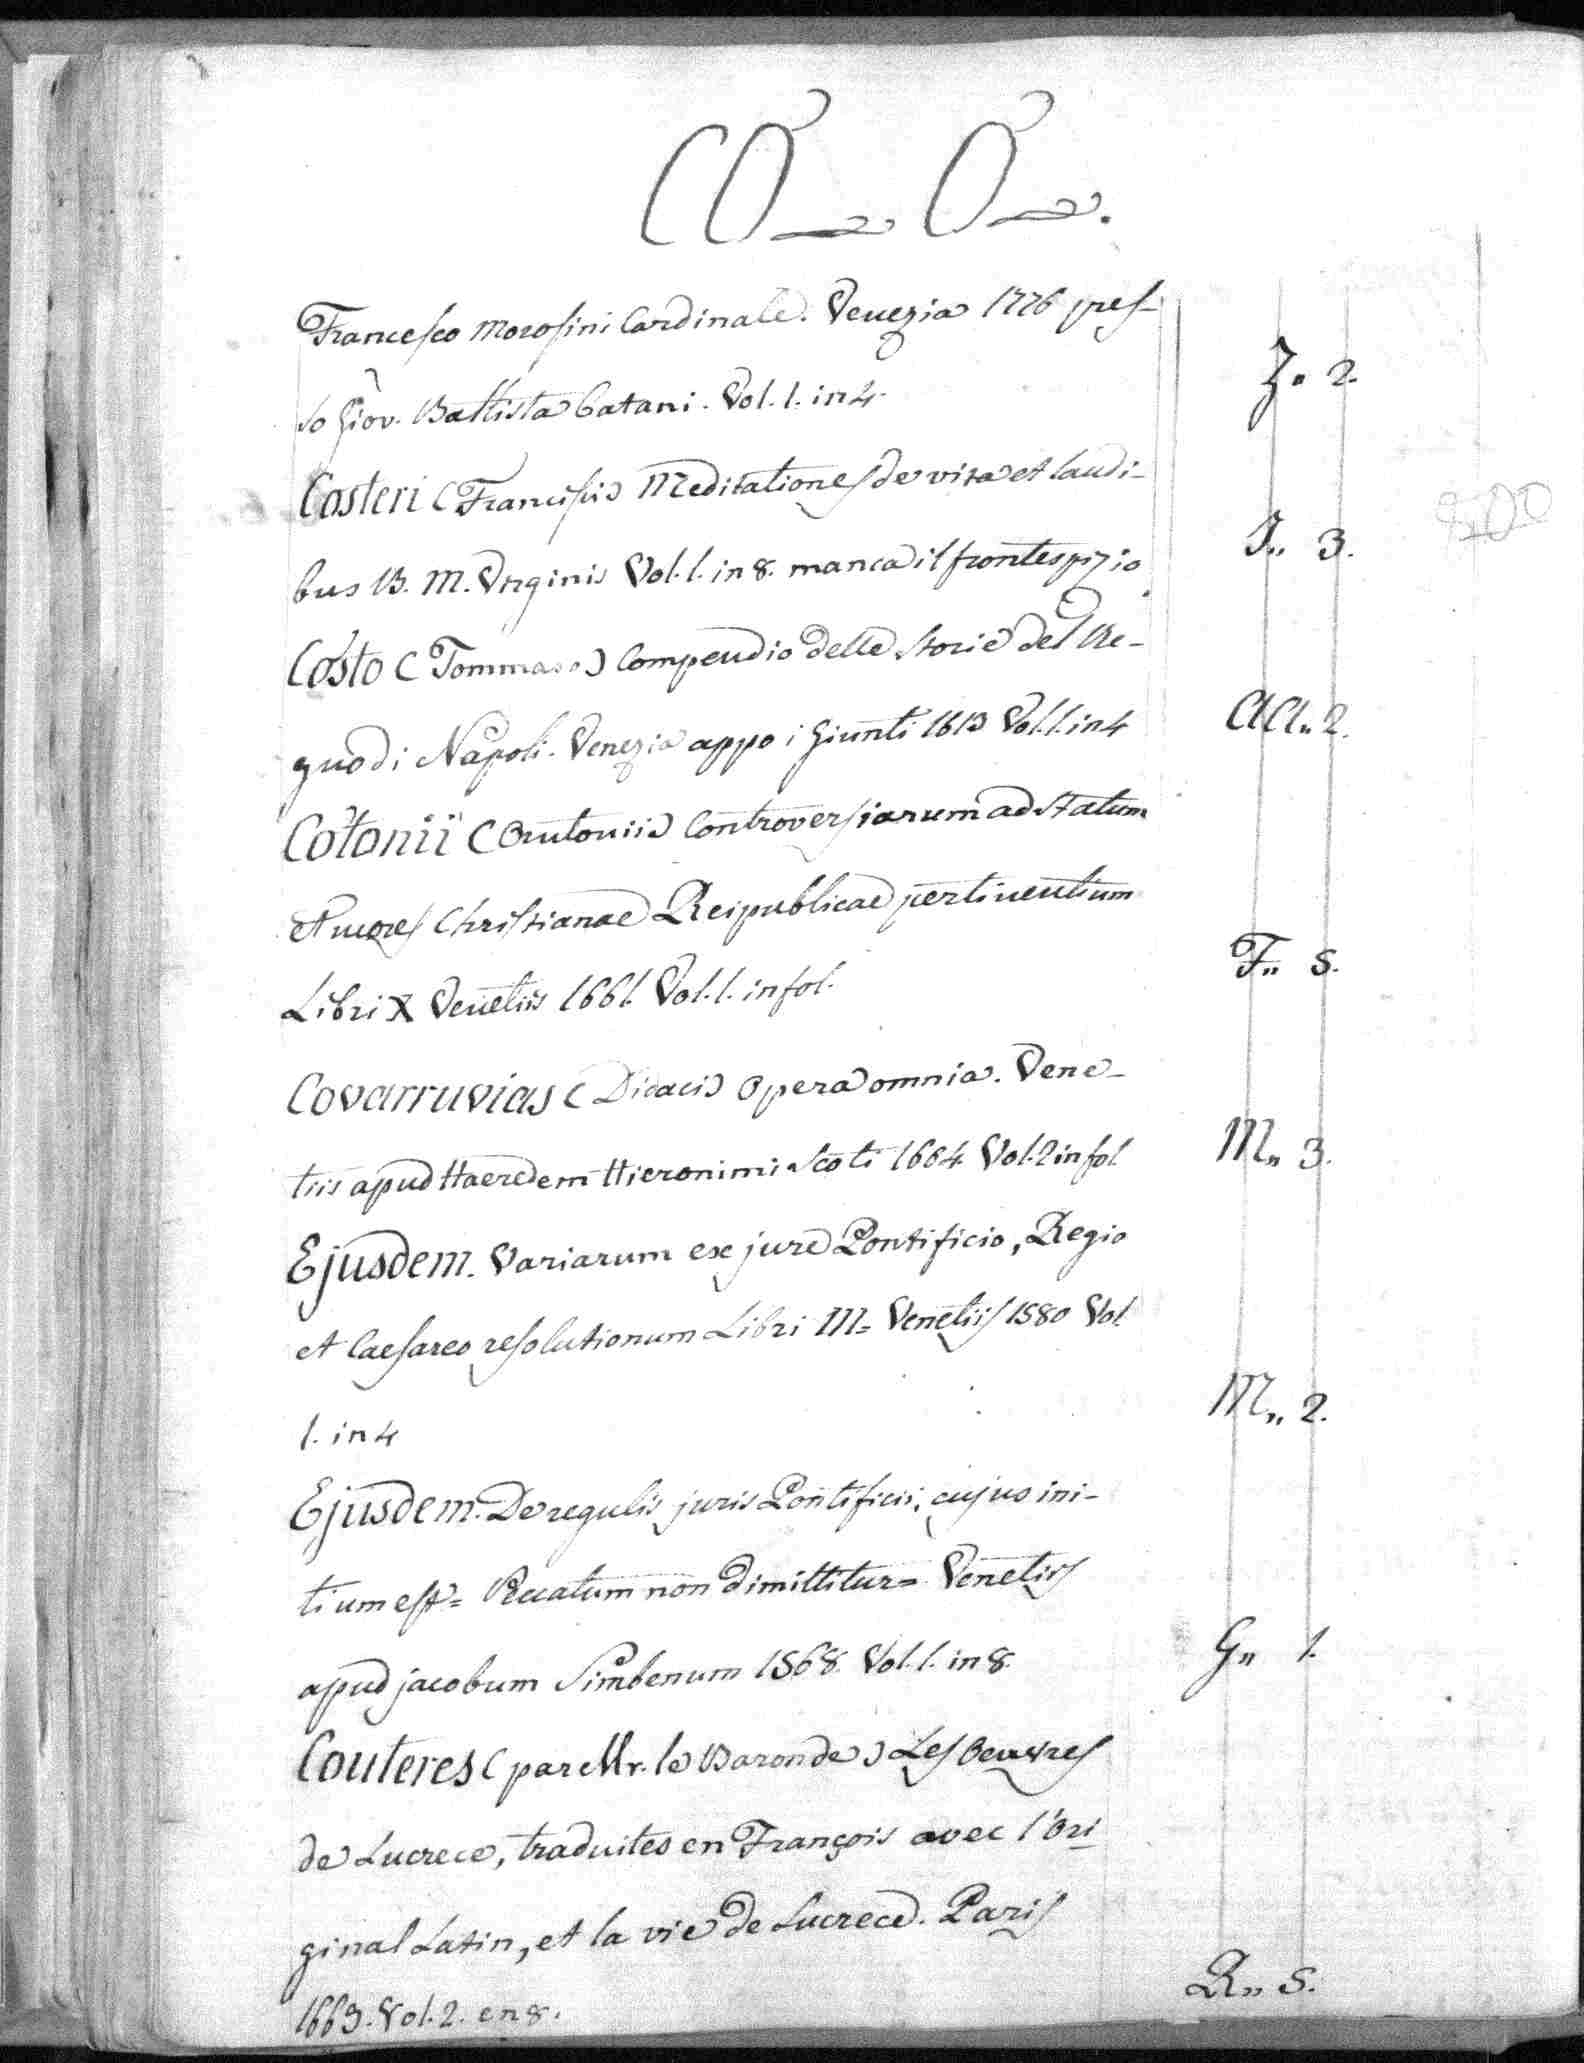 CO. O.
Francesco Morosini Cardinale. Venezia 1776 pres-
so Giov. Battista Catani. Vol. 1. in 4. Z. 2.
Costeri (Francisci) Meditationes de vita et laudi-
bus B. M. Virginis Vol. 1. in 8. manca il frontespizio. I. 3.
Costo (Tommaso) Compendio delle Storie del Re-
gno di Napoli. Venezia appo i Giunti 1613 Vol. 1. in 4 AA. 2.
Cotonii (Antonii) Controversiarum ad statum
et mores Christianae Reipublicae pertinentium
Libri X Venetiis 1661. Vol. 1. in fol. F. 5.
Covarruvias (Didaci) Opera omnia. Vene-
tiis apud Haeredem Hieronimi Scoti 1604 Vol. 2 in fol. M. 3.
Ejusdem. Variarum ex jure Pontificio, Regio
et Caesareo resolutionum Libri III= Venetiis 1580 Vol.
1. in 4 M. 2.
Ejusdem. De regulis juris Pontificii, cujus ini-
tium est= Peccatum non dimittitur= Venetiis
apud jacobum Simbenum 1568. Vol. 1. in 8. G. 1.
Couteres (par Mr. le Baron de) Les Oeuvres
de Lucrece, traduites en François avec l'Ori-
ginal Latin, et la vie de Lucrece. Paris
1663. Vol. 2. en 8. R. 5.